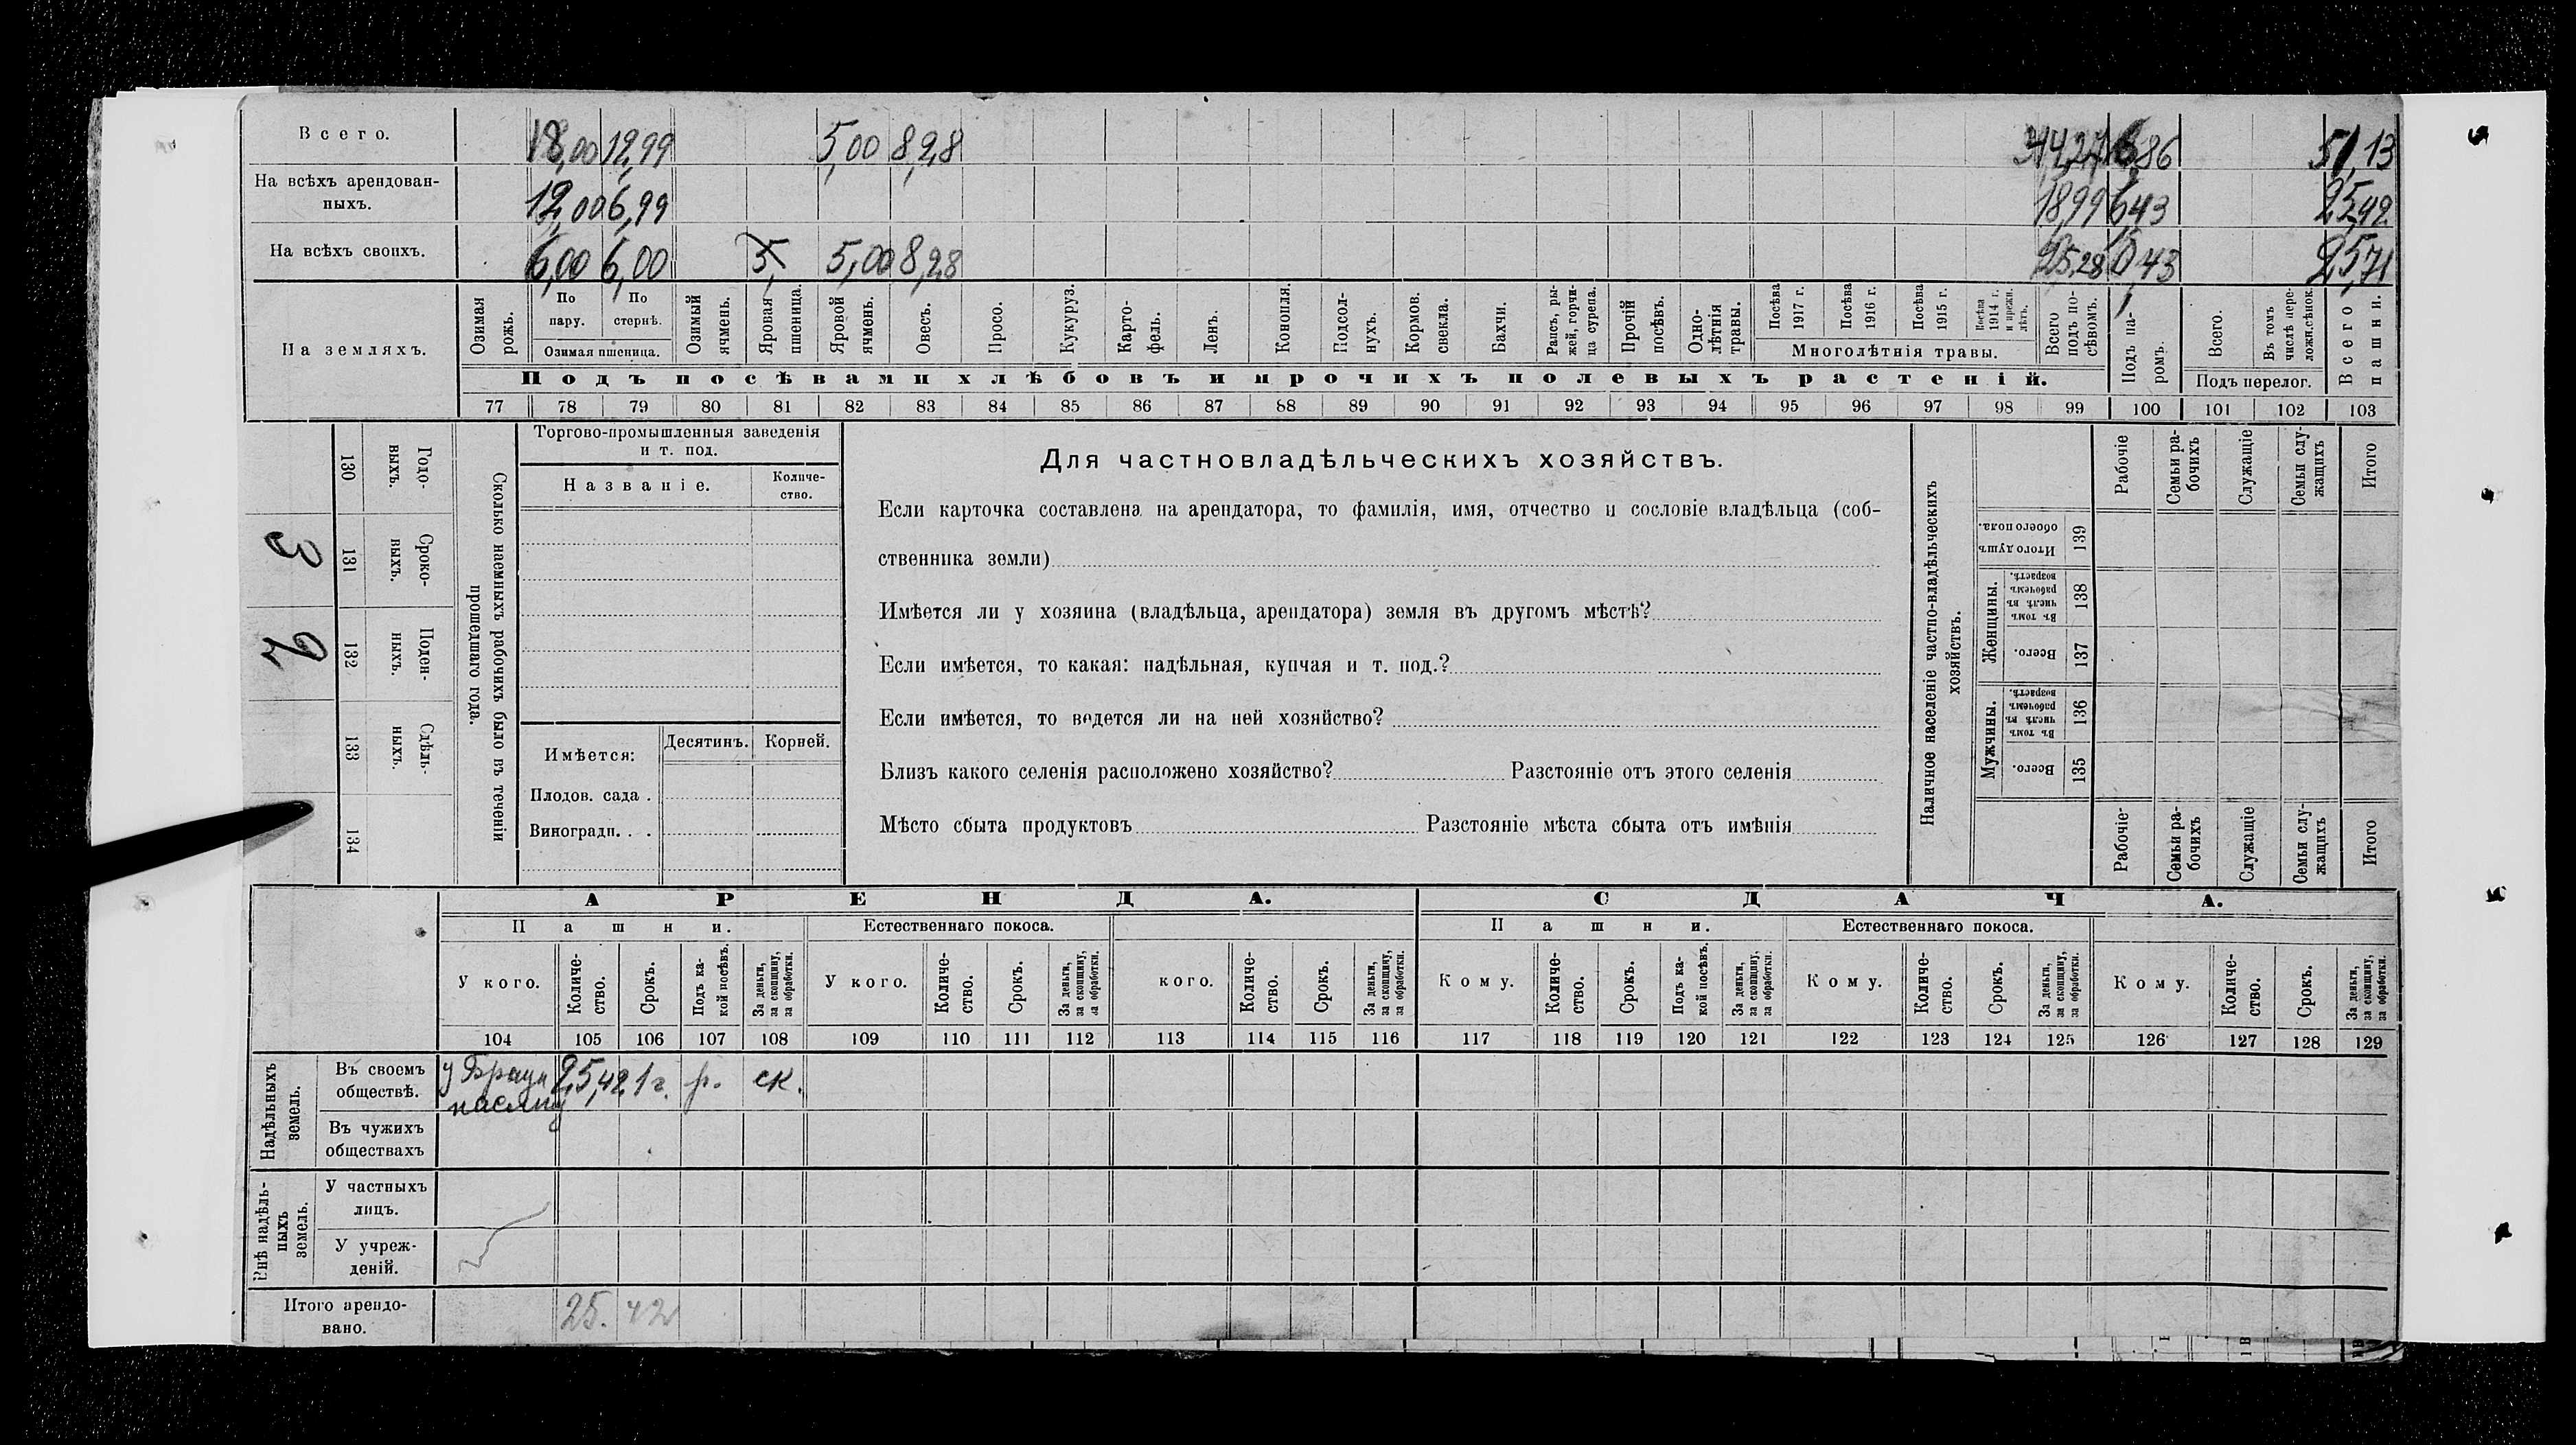 Всего. 18,00 12,99 5,00 8,28 44,27 6,86 51,13
На всѣхъ арендован-
ныхъ. 12,00 6,99 18,99 6,43 25,42
На всѣхъ своихъ. 6,00 6,00 5,00 8,28 25,28 0,43 25,71
На земляхъ.
Озимая рожь.
По пару.
По стернѣ.
Озимая пшеница.
Озимый ячмень.
Яровая пшеница.
Яровой ячмень.
Овесъ.
Просо.
Кукуруз.
Карто-
фель.
Ленъ.
Конопля.
Подсол-
нухъ.
Кормов. свекла.
Бахчи.
Рапсъ, ры-
жей, горчи-
ца сурепа.
Прочій посѣвъ.
Одно-
лѣтнія травы.
Посѣва 1917 г.
Посѣва 1916 г.
Посѣва 1915 г.
Посѣва 1914 г. и прежн. лѣтъ.
Многолѣтнія травы.
Всего подъ по-
сѣвомъ.
Подъ посѣвами хлѣбовъ и прочихъ полевыхъ растеній.
Подъ па-
ромъ.
Всего.
Въ томъ числѣ пере-
ложн.сѣнок.
Подъ перелог.
Всего пашни.
77 78 79 80 81 82 83 84 85 86 87 88 89 90 91 92 93 94 95 96 97 98 99 100 101 102 103
130 Годо-
выхъ.
131 Сроко-
выхъ.
3
132 Поден-
ныхъ.
2
133 Сдѣль-
ныхъ.
134
Сколько наемныхъ рабочихъ было въ теченіи
прошедшаго года.
Торгово-промышленныя заведенія
и т. под.
Названіе.
Количе-
ство.
Имѣется:
Десятинъ.
Корней.
Плодов. сада .
Виноградн. . .
Для частновладѣльческихъ хозяйствъ.
Если карточка составлена на арендатора, то фамилія, имя, отчество и сословіе владѣльца (соб-
ственника земли)
Имѣется ли у хозяина (владѣльца, арендатора) земля въ другомъ мѣстѣ?
Если имѣется, то какая: надѣльная, купчая и т. под.?
Если имѣется, то ведется ли на ней хозяйство?
Близъ какого селенія расположено хозяйство? Разстояніе отъ этого селенія
Мѣсто сбыта продуктовъ Разстояніе мѣста сбыта отъ имѣнія
Наличное населеніе частно-владѣльческихъ
хозяйствъ.
Рабочіе
Семьи ра-
бочихъ
Служащіе
Семьи слу-
жащихъ
Итого
Итого душъ обоего пола.
139
Женщины.
Въ томъ числѣ въ рабочемъ возрастѣ.
138
Всего.
137
Мужчины.
Въ томъ числѣ въ рабочемъ возрастѣ.
136
Всего.
135
Рабочіе
Семьи ра-
бочихъ
Служащіе
Семьи слу-
жащихъ
Итого
АРЕНДА. СДАЧА.
Пашни. Естественнаго покоса. Пашни. Естественнаго покоса.
У кого. Количе-
ство. Срокъ. Подъ ка-
кой посѣвъ. За деньги, за скопщину, за обработки.
У кого. Количе-
ство. Срокъ. За деньги, за скопщину, за обработки.
кого. Количе-
ство. Срокъ. За деньги, за скопщину, за обработки.
Кому. Количе-
ство. Срокъ. Подъ ка-
кой посѣвъ. За деньги, за скопщину, за обработки.
Кому. Количе-
ство. Срокъ. За деньги, за скопщину, за обработки.
Кому. Количе-
ство. Срокъ. За деньги, за скопщину, за обработки.
104 105 106 107 108 109 110 111 112 113 114 115 116 117 118 119 120 121 122 123 124 125 126 127 128 129
Надѣльныхъ земель.
Въ своемъ
обществѣ. у 25,42 1 г. р. ск.
Въ чужихъ
обществахъ
Внѣ надѣль-
ныхъ земель.
У частныхъ
лицъ.
У учреж-
деній.
Итого арендо-
вано. 25. 42